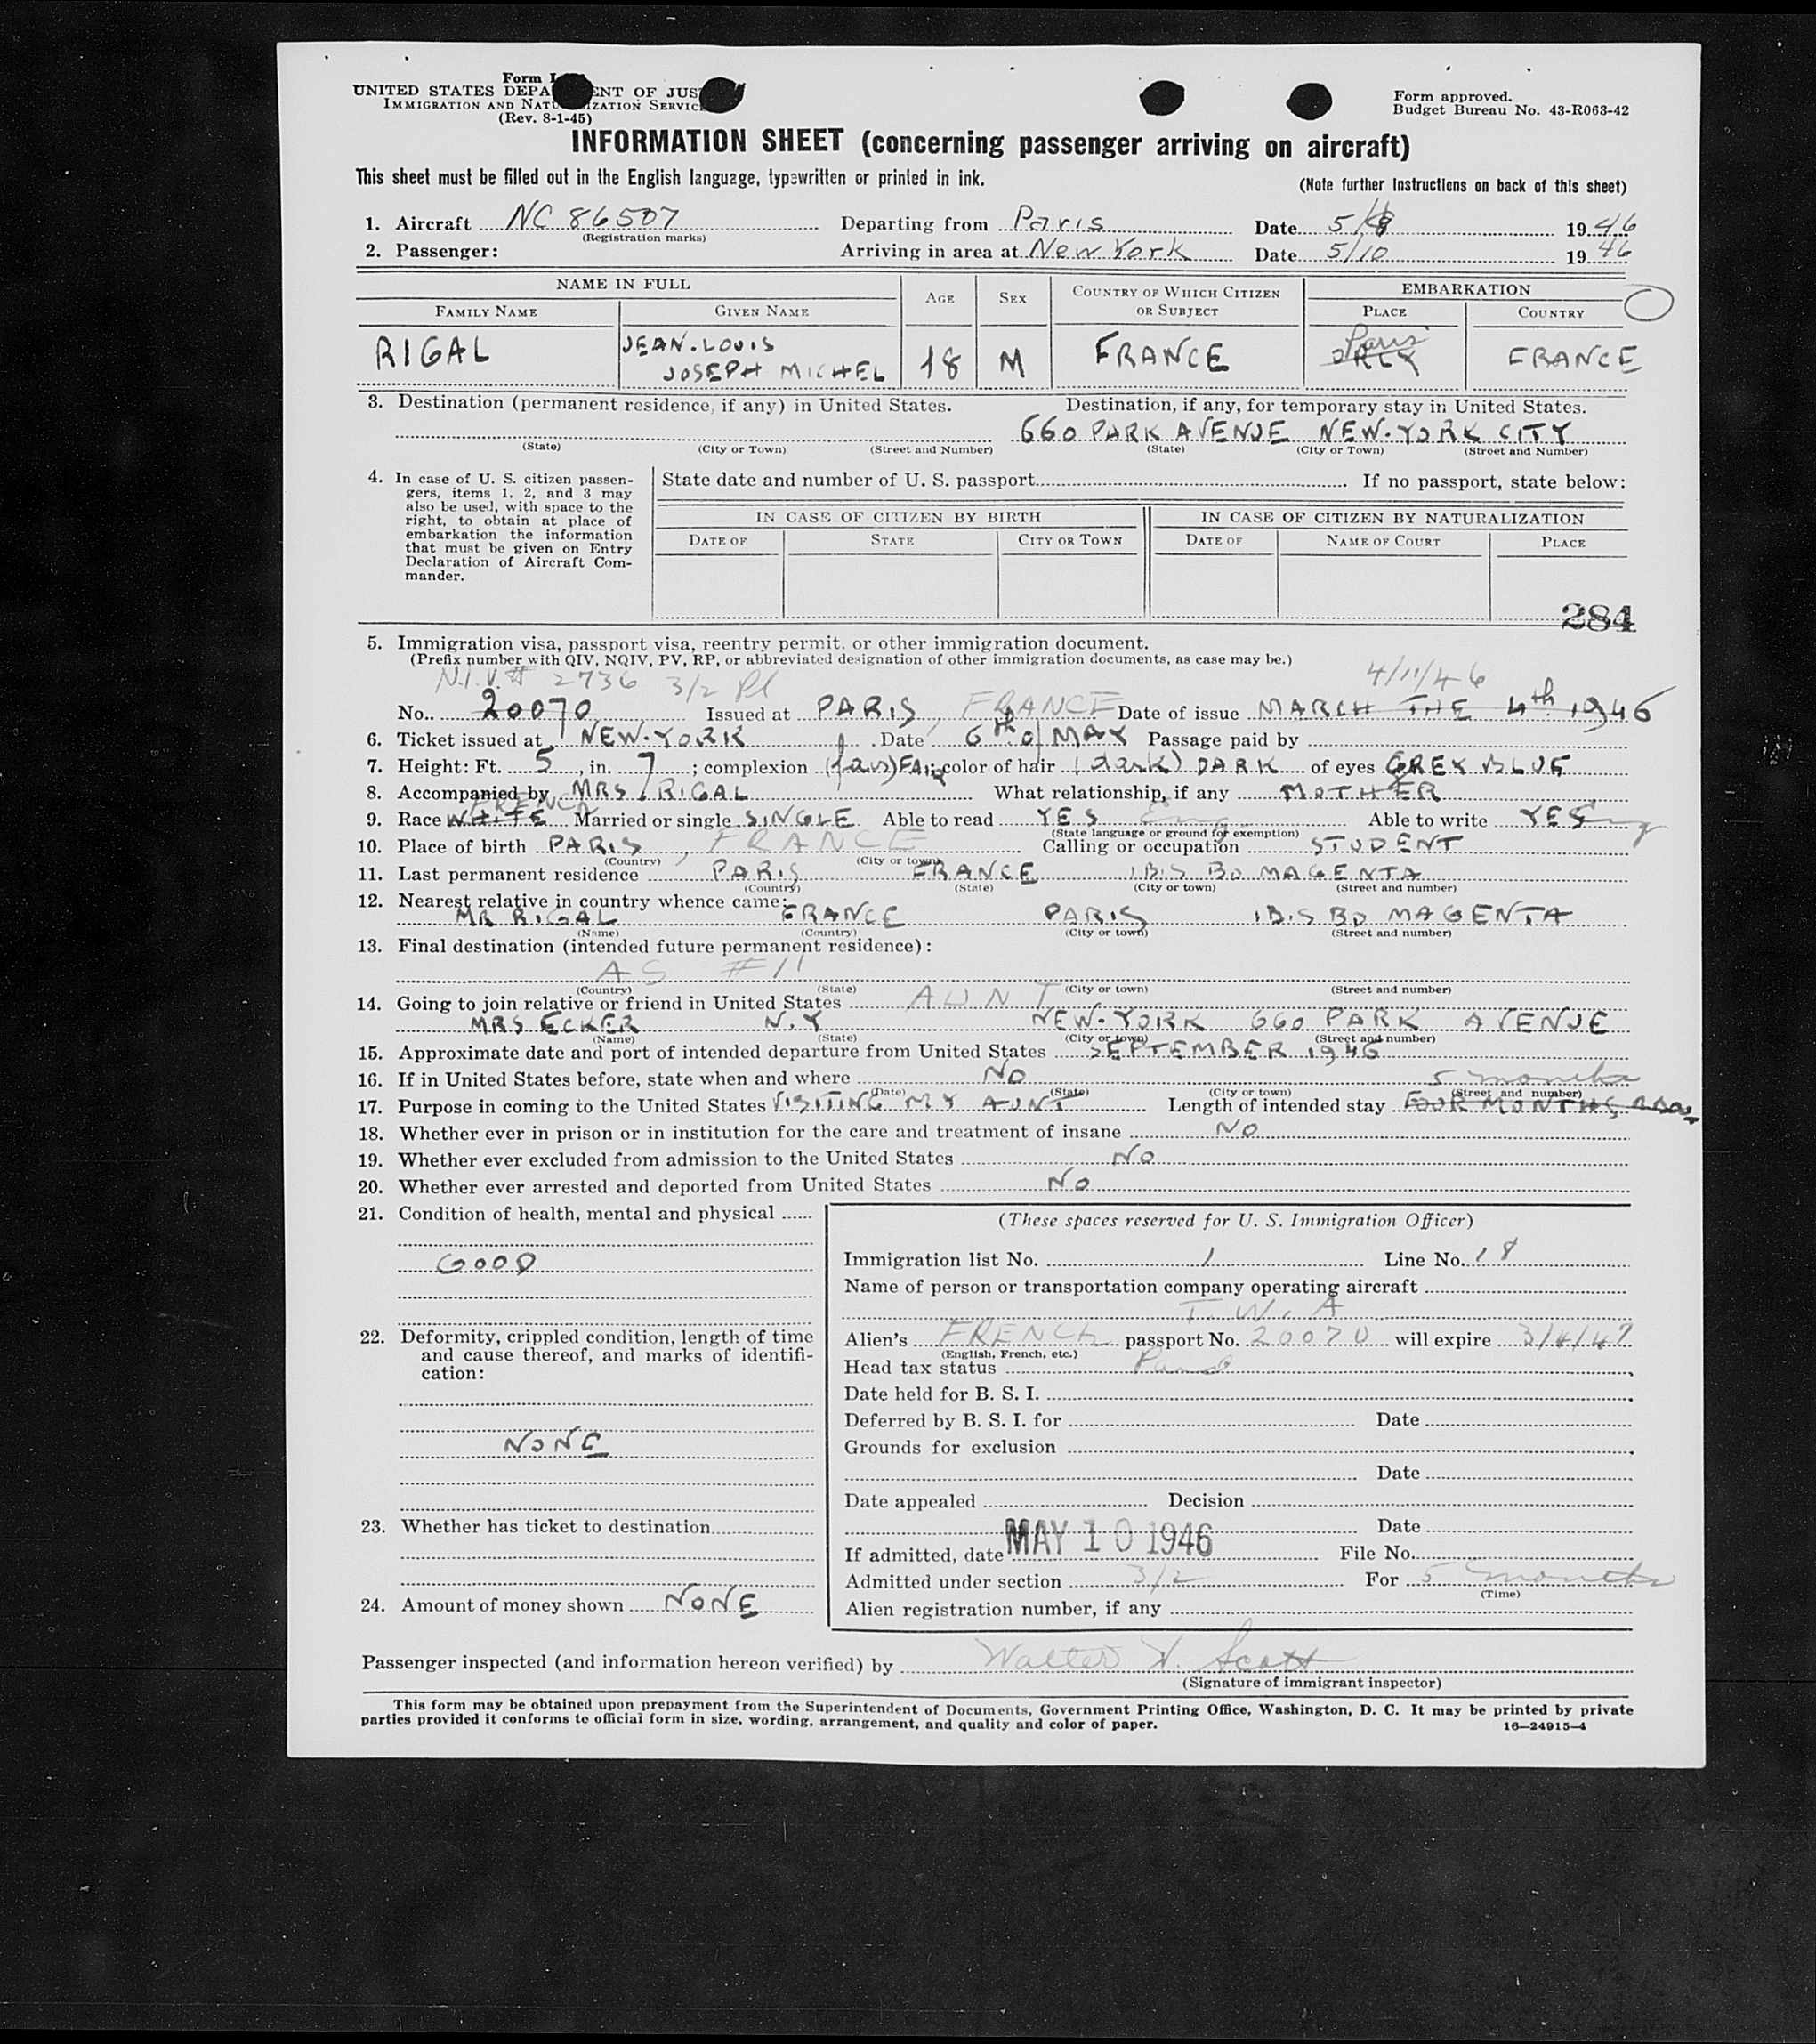 Form I
UNITED STATES DEPA ENT OF JUS
IMMIGRATION AND NATU IZATION SERVIC
(Rev. 8-1-45)
Form approved.
Budget Bureau No. 43-R063-42
INFORMATION SHEET (concerning passenger arriving on aircraft)
This sheet must be filled out in the English language, typewritten or printed in ink.
(Note further instructions on back of this sheet)
1. Aircraft NC 86507 Departing from Paris Date 5/8 1946
(Registration marks)
2. Passenger: Arriving in area at New York Date 5/10 1946
NAME IN FULL AGE SEX COUNTRY OF WHICH CITIZEN OR SUBJECT EMBARKATION
FAMILY NAME GIVEN NAME PLACE COUNTRY
Paris
RIGAL JEAN.LOUIS JOSEPH MICHEL 18 M FRANCE ORLY FRANCE
3. Destination (permanent residence, if any) in United States. Destination, if any, for temporary stay in United States.
660 PARK AVENUE NEW.YORK CITY
(State) (City or Town) (Street and Number) (State) (City or Town) (Street and Number)
4. In case of U. S. citizen passen-
gers, items 1, 2, and 3 may
also be used, with space to the
right, to obtain at place of
embarkation the information
that must be given on Entry
Declaration of Aircraft Com-
mander.
State date and number of U. S. passport If no passport, state below:
IN CASE OF CITIZEN BY BIRTH IN CASE OF CITIZEN BY NATURALIZATION
DATE OF STATE CITY OR TOWN DATE OF NAME OF COURT PLACE
284
5. Immigration visa, passport visa, reentry permit, or other immigration document.
(Prefix number with QIV, NQIV, PV, RP, or abbreviated designation of other immigration documents, as case may be.)
N.I.V.# 2736 3/2 Pl 4/11/46
No. 20070 Issued at PARIS, FRANCE Date of issue MARCH THE 4th 1946
6. Ticket issued at NEW.YORK Date 6th of MAY Passage paid by
7. Height: Ft. 5, in. 7; complexion (fair) FAIR; color of hair (dark) DARK of eyes GREY BLUE
8. Accompanied by MRS. RIGAL What relationship, if any MOTHER
FRENCH
9. Race WHITE Married or single SINGLE Able to read YES Eng Able to write YES Eng
(State language or ground for exemption)
10. Place of birth PARIS, FRANCE Calling or occupation STUDENT
(Country) (City or town)
11. Last permanent residence PARIS FRANCE 1B.S BD MAGENTA
(Country) (State) (City or town) (Street and number)
12. Nearest relative in country whence came:
MR RIGAL FRANCE PARIS 1B.S BD MAGENTA
(Name) (Country) (City or town) (Street and number)
13. Final destination (intended future permanent residence):
AS #11
(Country) (State) (City or town) (Street and number)
14. Going to join relative or friend in United States AUNT
MRS ECKER N.Y NEW.YORK 660 PARK AVENUE
(Name) (State) (City or town) (Street and number)
15. Approximate date and port of intended departure from United States SEPTEMBER 1946
16. If in United States before, state when and where NO
(Date) (State) (City or town) (Street and number)
5 months
17. Purpose in coming to the United States VISITING MY AUNT Length of intended stay FOUR MONTHS
18. Whether ever in prison or in institution for the care and treatment of insane NO
19. Whether ever excluded from admission to the United States NO
20. Whether ever arrested and deported from United States NO
21. Condition of health, mental and physical
GOOD
22. Deformity, crippled condition, length of time
and cause thereof, and marks of identifi-
cation:
NONE
23. Whether has ticket to destination
24. Amount of money shown NONE
(These spaces reserved for U. S. Immigration Officer)
Immigration list No. 1 Line No. 18
Name of person or transportation company operating aircraft
T. W. A
Alien's FRENCH passport No. 20070 will expire 3/4/47
(English, French, etc.)
Head tax status
Date held for B. S. I.
Deferred by B. S. I. for Date
Grounds for exclusion
Date
Date appealed Decision
Date
If admitted, date MAY 10 1946 File No.
Admitted under section 3/2 For 5 months
(Time)
Alien registration number, if any
Passenger inspected (and information hereon verified) by Walter W. Scott
(Signature of immigrant inspector)
This form may be obtained upon prepayment from the Superintendent of Documents, Government Printing Office, Washington, D. C. It may be printed by private
parties provided it conforms to official form in size, wording, arrangement, and quality and color of paper. 16—24915-4